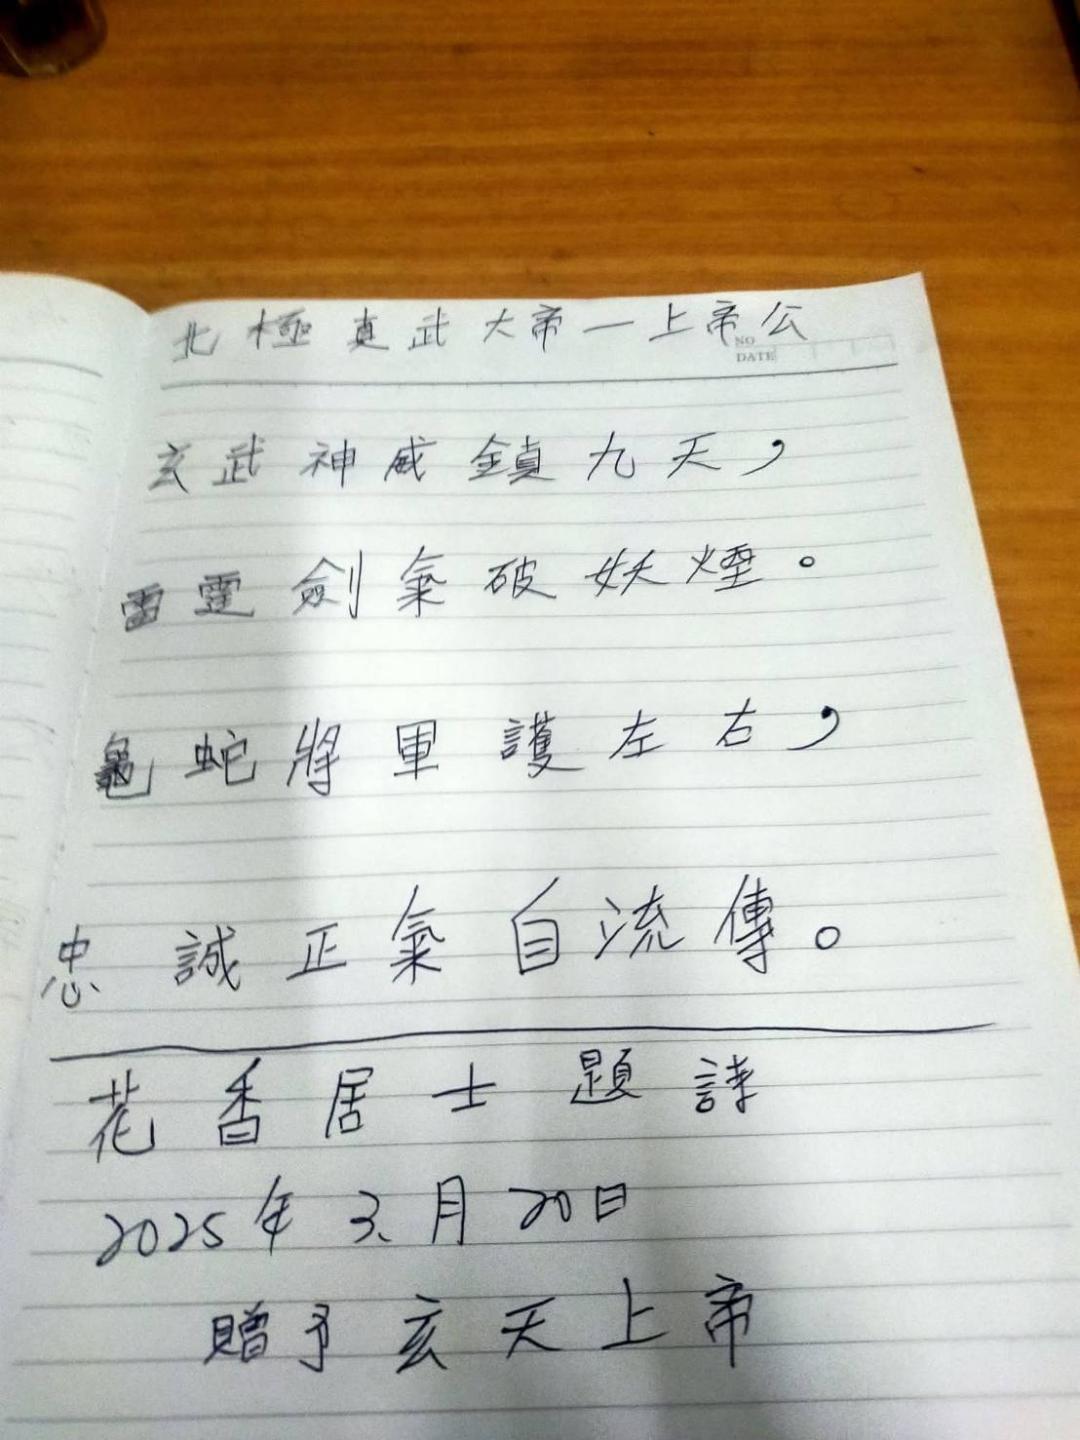 北極真武大帝—上帝公
NO
DATE
玄武神威鎮九天，
雷霆劍氣破妖煙。
龜蛇將軍護左右，
忠誠正氣自流傳。
花香居士題詩
2025年3月20日
贈予玄天上帝